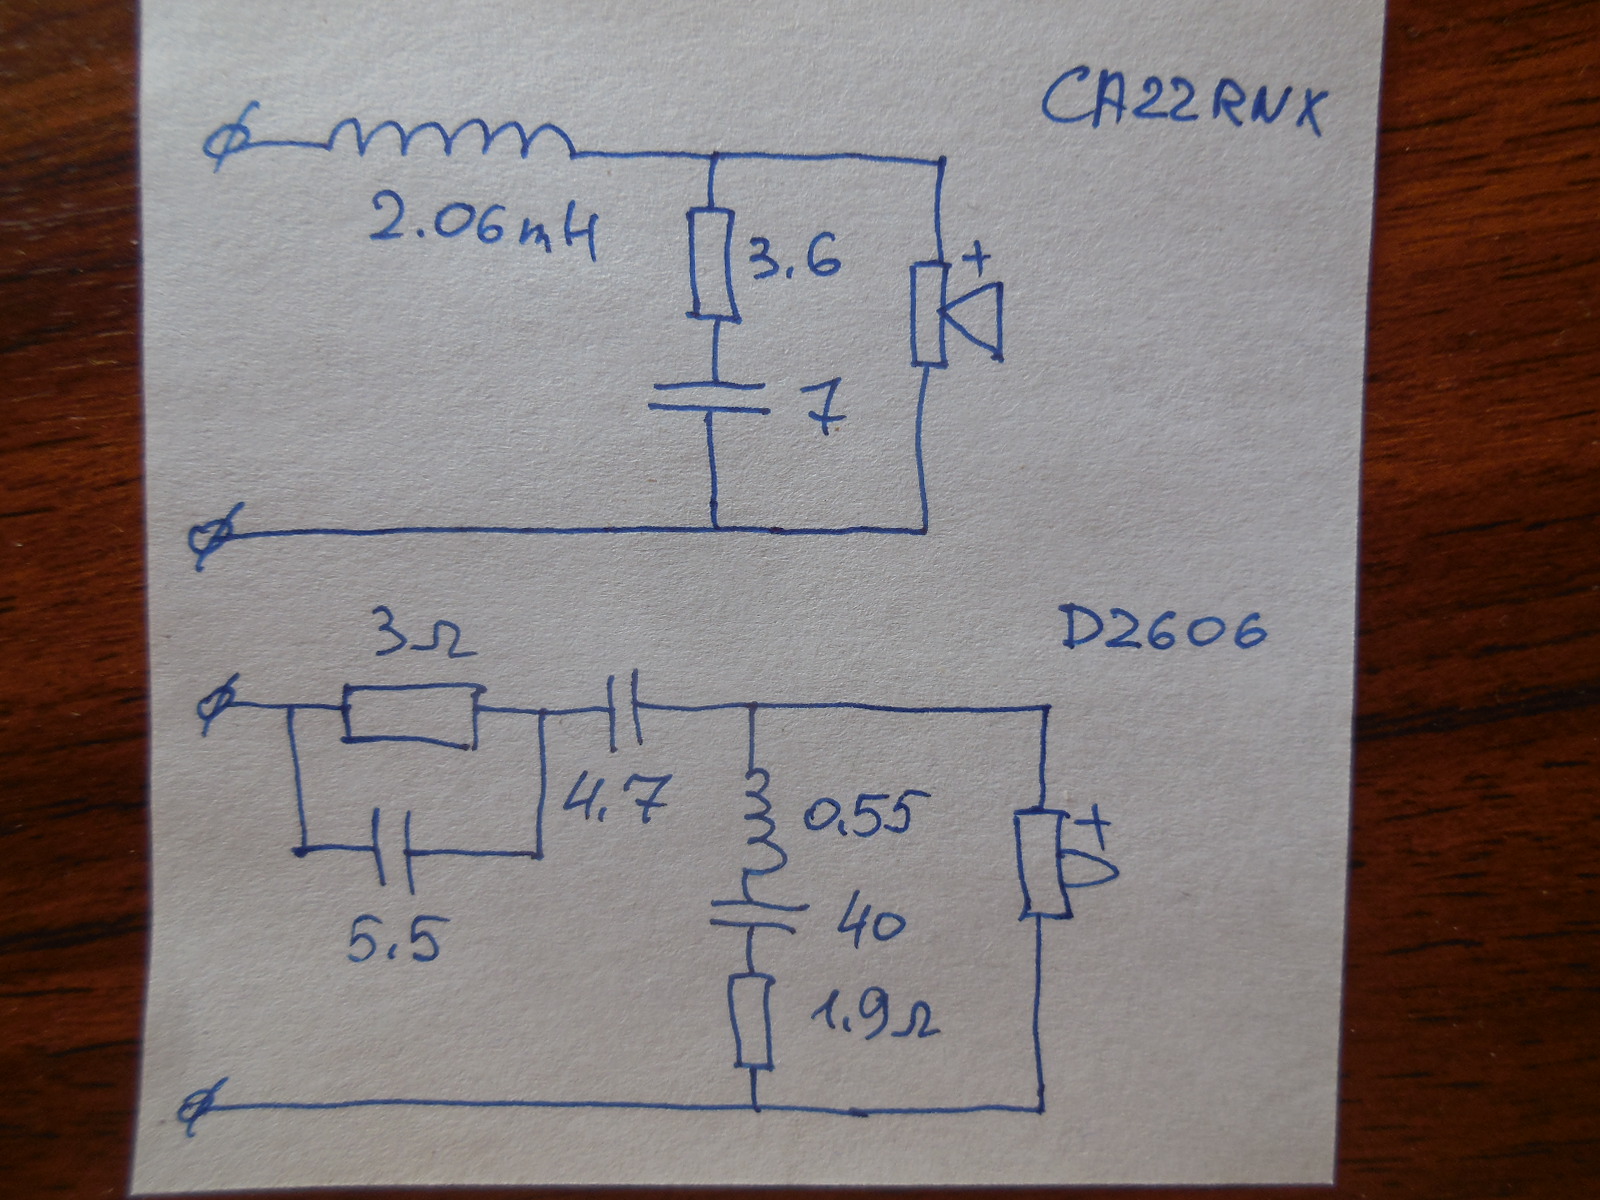 CA22RNX
2.06mH
+
3.6
7
D2606
3Ω
4.7
0.55
+
5.5
40
1.9Ω